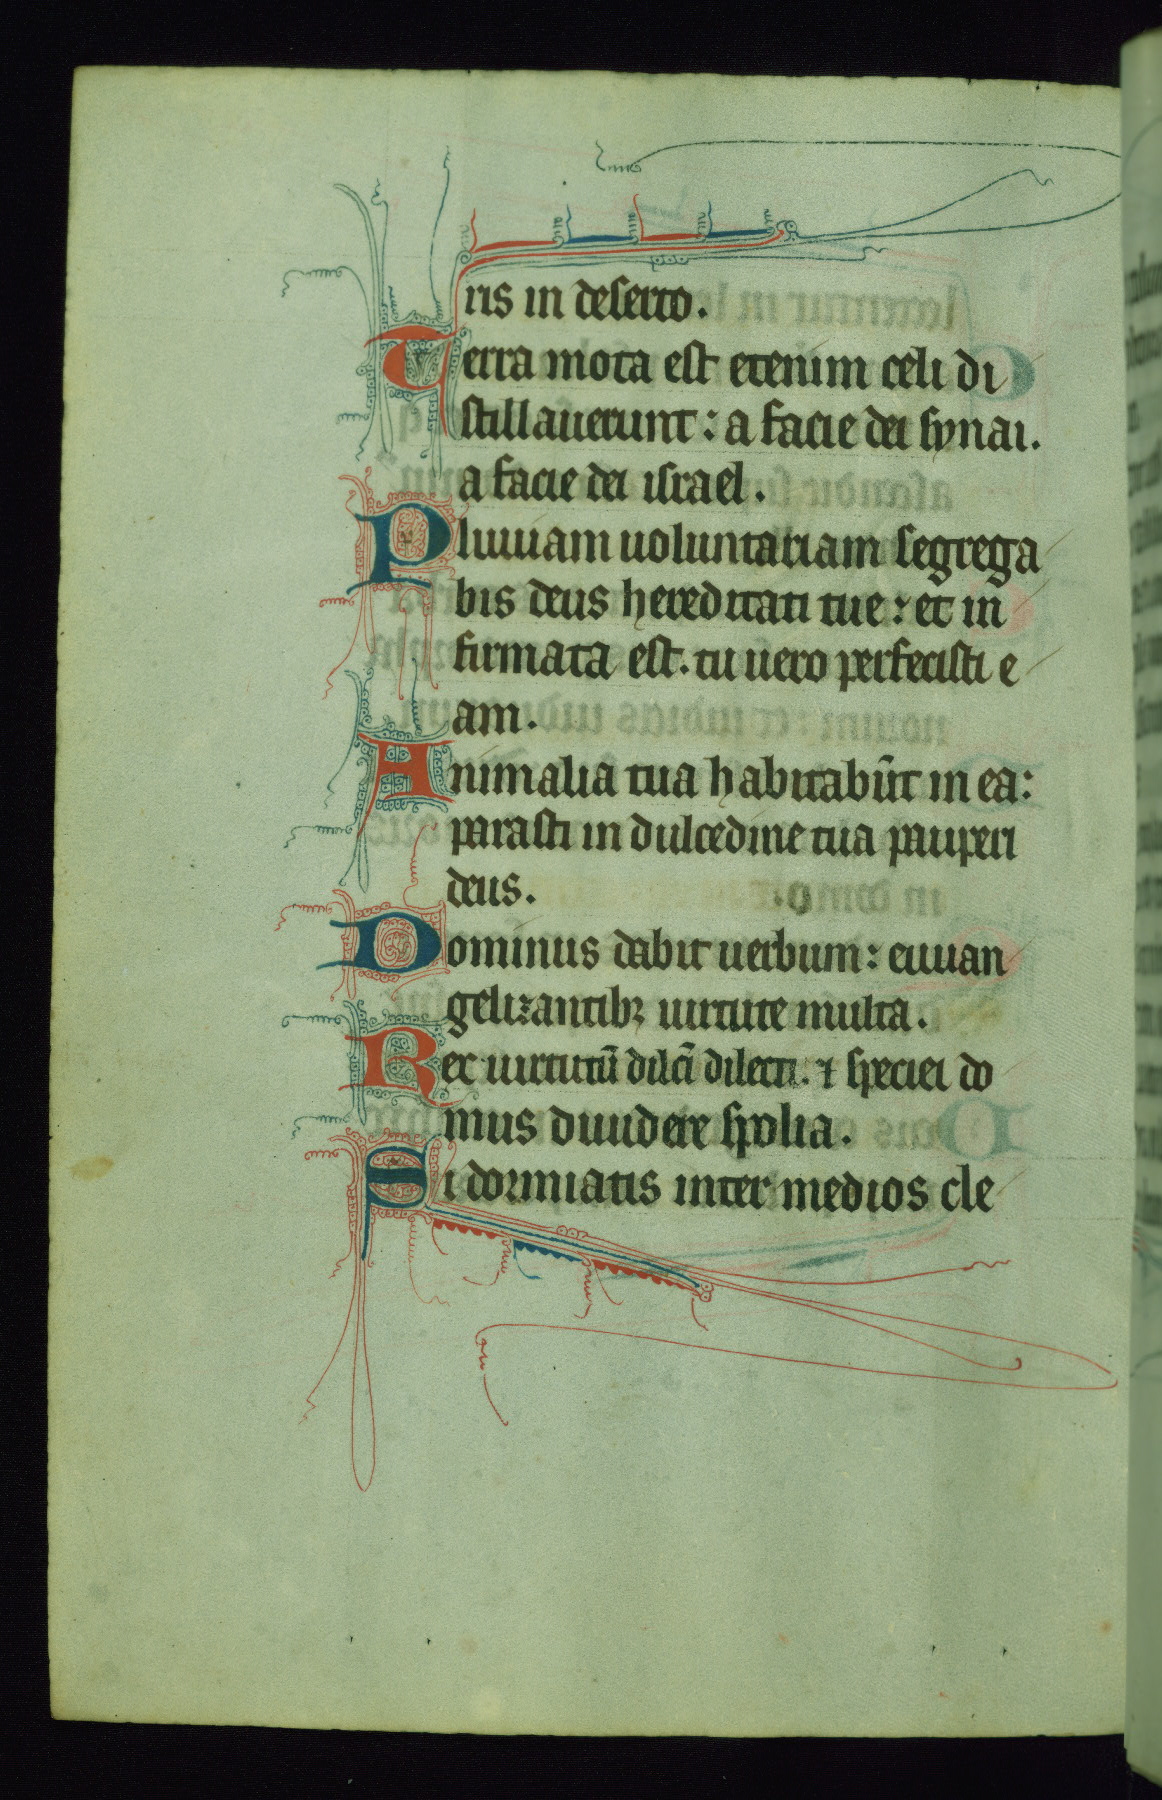 ris in deserto.
Terra mota est etenim celi di
stillauerunt: a facie dei synai.
a facie dei israel.
Pluuiam uoluntariam segrega
bis deus hereditati tue: et in
firmata est. tu uero perfecisti e
am.
Animalia tua habitabūt in ea:
parasti in dulcedine tua pauperi
deus.
Dominus dabit uerbum: euuan
gelizantibꝫ uirtute multa.
Rex uirtutū dilc̄i dilecti. ⁊ speciei do
mus diuidere spolia.
Si dormiatis inter medios cle